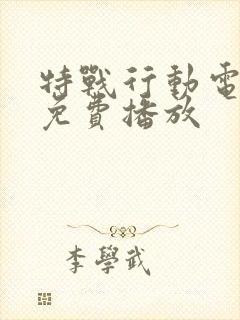 特戰行動電
免費播放
李學武